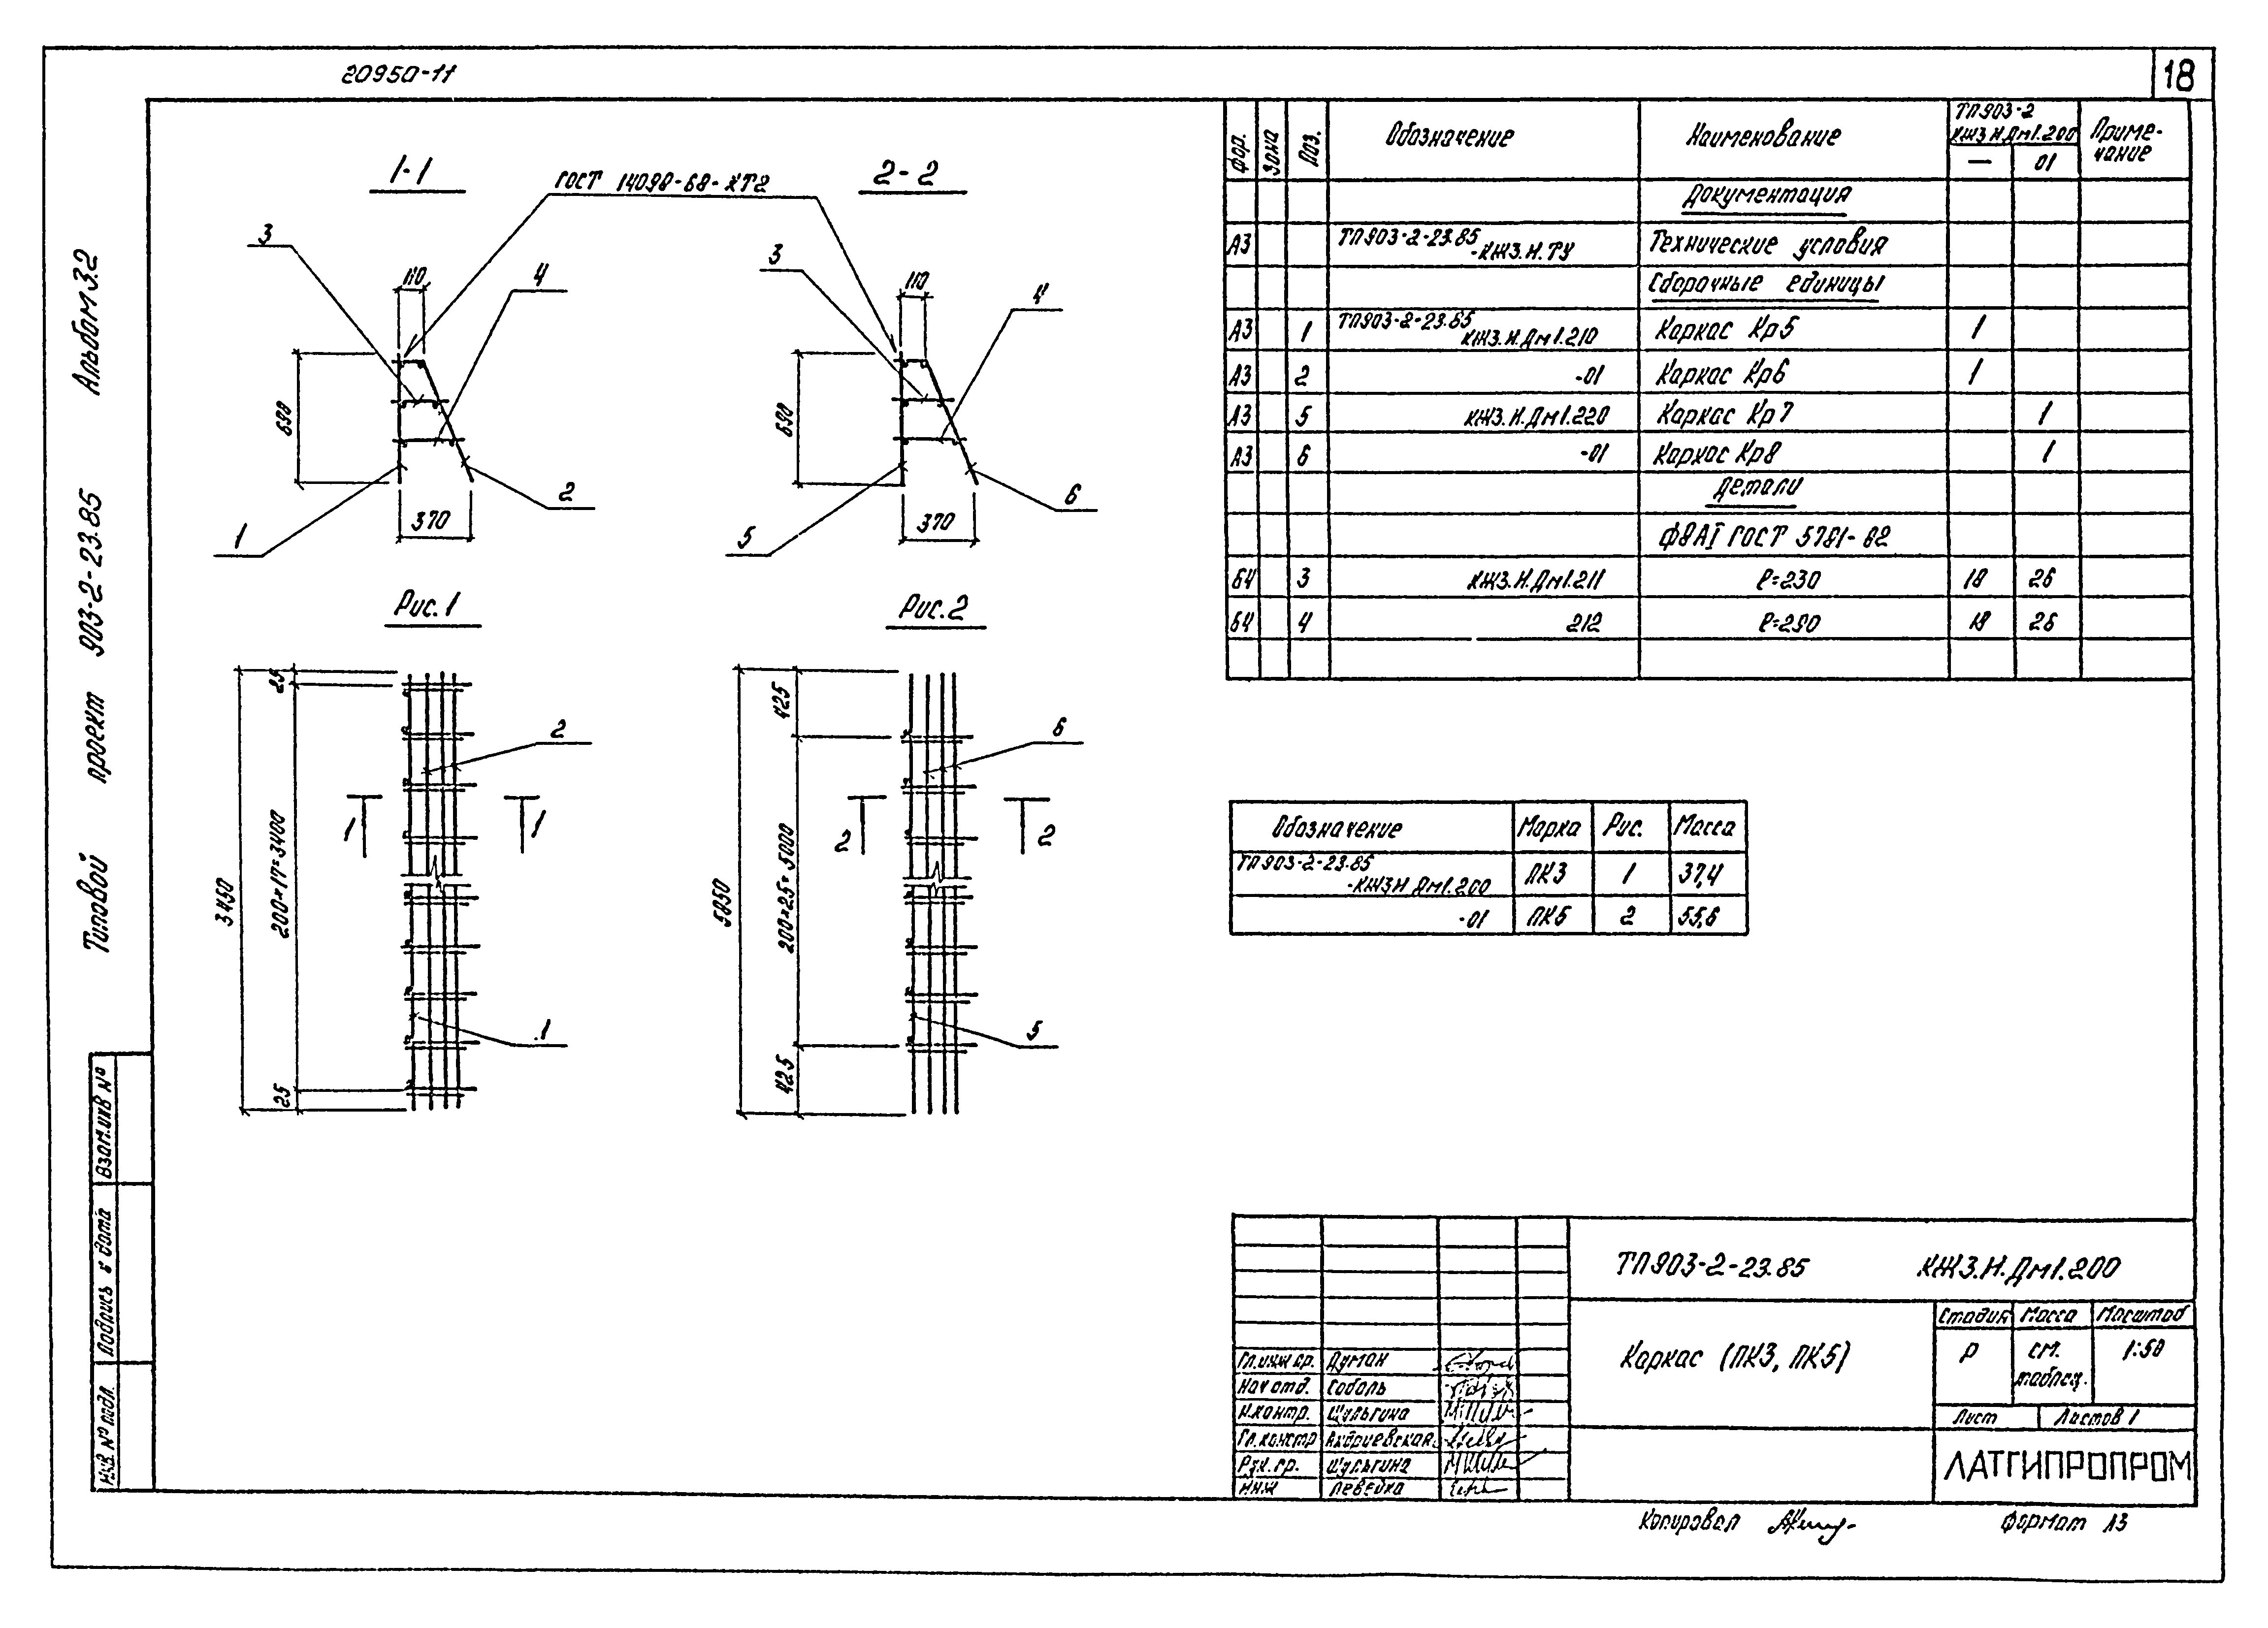 20950-11
18
Альбом 3.2
Типовой проект 903-2-23.85
1-1
2-2
ГОСТ 14098-68-КТ2
3
110
4
690
1
370
2
3
110
4
690
5
370
6
Рис. 1
Рис. 2
3450
25
200×17=3400
25
2
1
1
1
5850
425
200×25=5000
425
6
2
2
5
Фор.
Зона
Поз.
Обозначение
Наименование
ТП903-2
КЖ3.И.Дм1.200
Приме-
чание
—
01
Документация
А3 ТП903-2-23.85
-КЖ3.И.ТУ Технические условия
Сборочные единицы
А3 1 ТП903-2-23.85
КЖ3.И.Дм1.210 Каркас Кр5 1
А3 2 -01 Каркас Кр6 1
А3 5 КЖ3.И.Дм1.220 Каркас Кр7 1
А3 6 -01 Каркас Кр8 1
Детали
Ф8АI ГОСТ 5781-82
Б4 3 КЖ3.И.Дм1.211 ℓ=230 18 26
Б4 4 212 ℓ=290 18 26
Обозначение Марка Рис. Масса
ТП903-2-23.85
-КЖ3И Дм1.200 ПК3 1 37,4
-01 ПК5 2 55,6
ТП903-2-23.85 КЖ3.И.Дм1.200
Каркас (ПК3, ПК5)
Стадия Масса Масштаб
Р см. таблиц. 1:50
Лист Листов 1
ЛАТГИПРОПРОМ
Гл.инж.пр. Думан
Нач отд. Соболь
Н.контр. Шульгина
Гл.констр Андриевская
Рук.гр. Шульгина
Инж Левейка
Взам.инв №
Подпись и дата
Инв. № подл.
Копировал
Формат А3